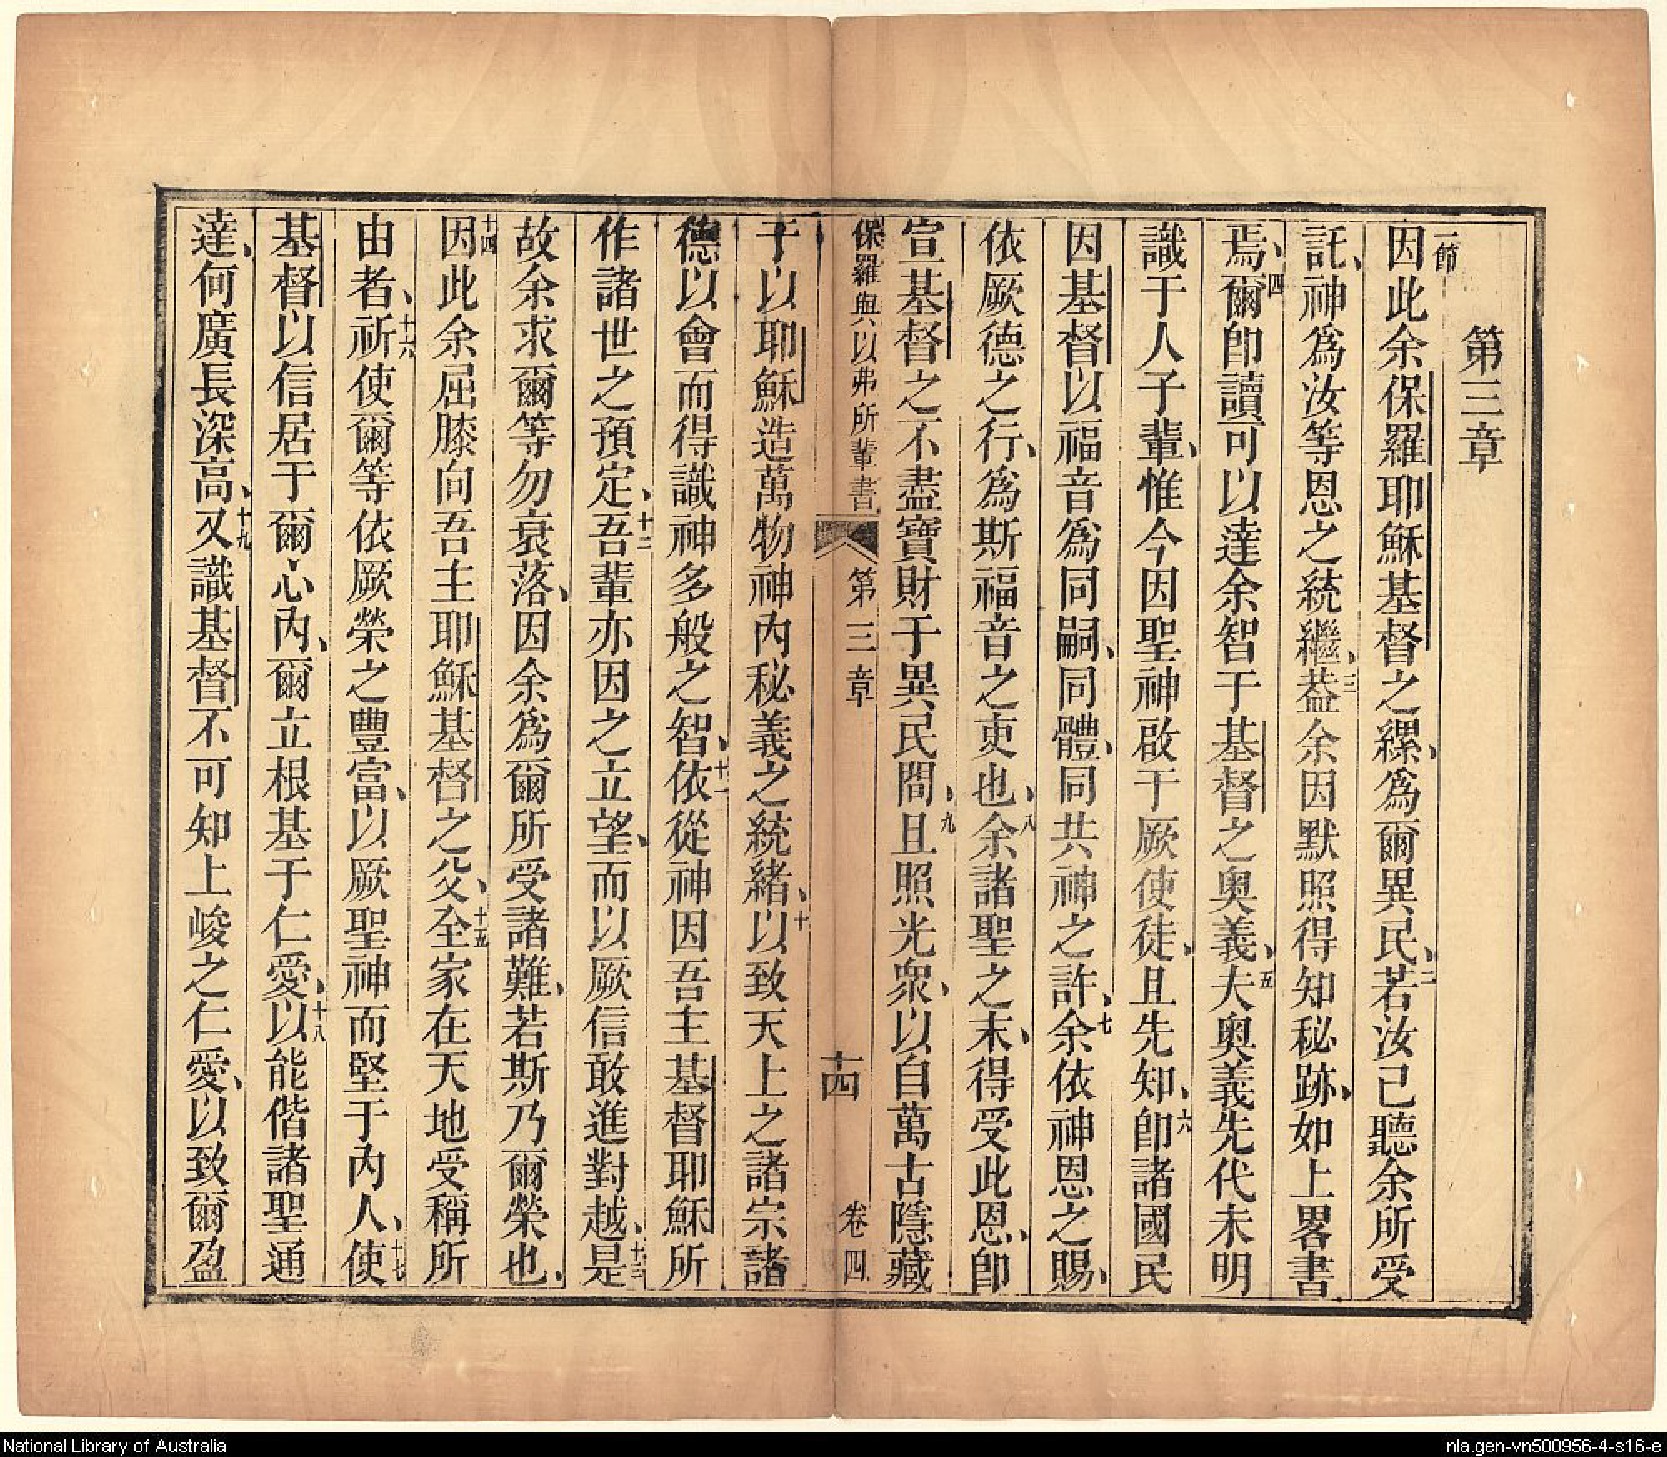 第三章
一節因此余保羅耶穌基督之縲、為爾異民、二若汝已聽余所受
託、神為汝等恩之統繼、三蓋余因默照得知秘跡、如上畧書
焉、四爾即讀可以達余智于基督之奧義、五夫奧義先代未明
識于人子輩、惟今因聖神啟于厥使徒、且先知、六即諸國民
因基督以福音為同嗣、同體、同共神之許、七余依神恩之賜、
依厥德之行、為斯福音之吏也、八余諸聖之末、得受此恩、即
宣基督之不盡寶財于異民間、九且照光衆、以自萬古隱藏
保羅與以弗所輩書 第三章 十四 卷四
于以耶穌造萬物神內秘義之統緒、十以致天上之諸宗諸
德以會而得識神多般之智、十一依從神因吾主基督耶穌所
作諸世之預定、十二吾輩亦因之立望、而以厥信敢進對越、十三是
故余求爾等勿衰落、因余為爾所受諸難、若斯乃爾榮也、
十四因此余屈膝向吾主耶穌基督之父、十五至家在天地受稱所
由者、十六祈使爾等依厥榮之豐富、以厥聖神而堅于內人、十七使
基督以信居于爾心內、爾立根基于仁愛、十八以能偕諸聖通
達、何廣長深高、十九又識基督不可知上峻之仁愛、以致爾盈
National Library of Australia
nla.gen-vn500956-4-s16-e